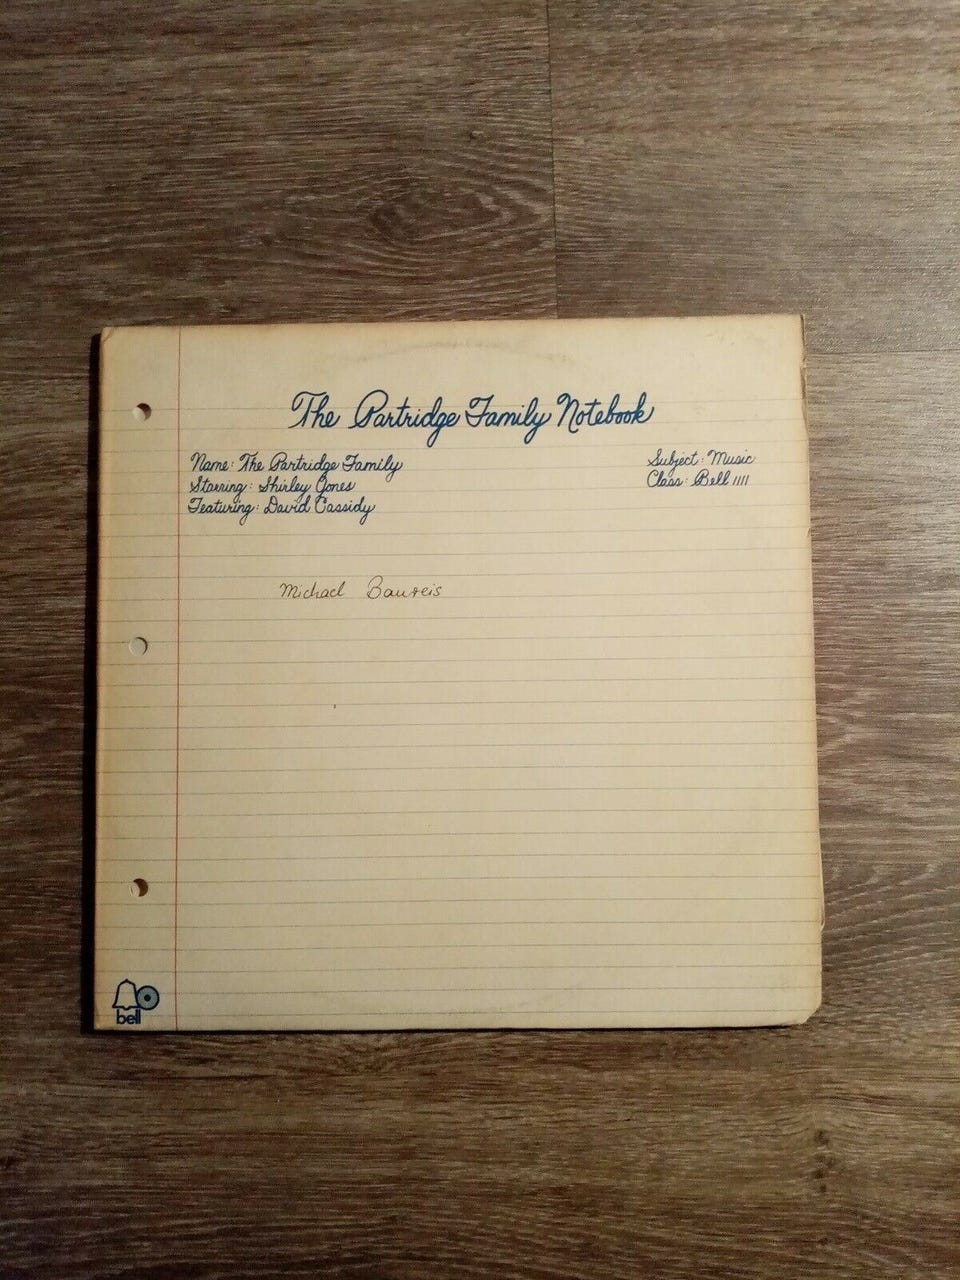 The Partridge Family Notebook
Name: The Partridge Family
Starring: Shirley Jones
Featuring: David Cassidy
Subject: Music
Class: Bell 1111
Michael Baureis
bell